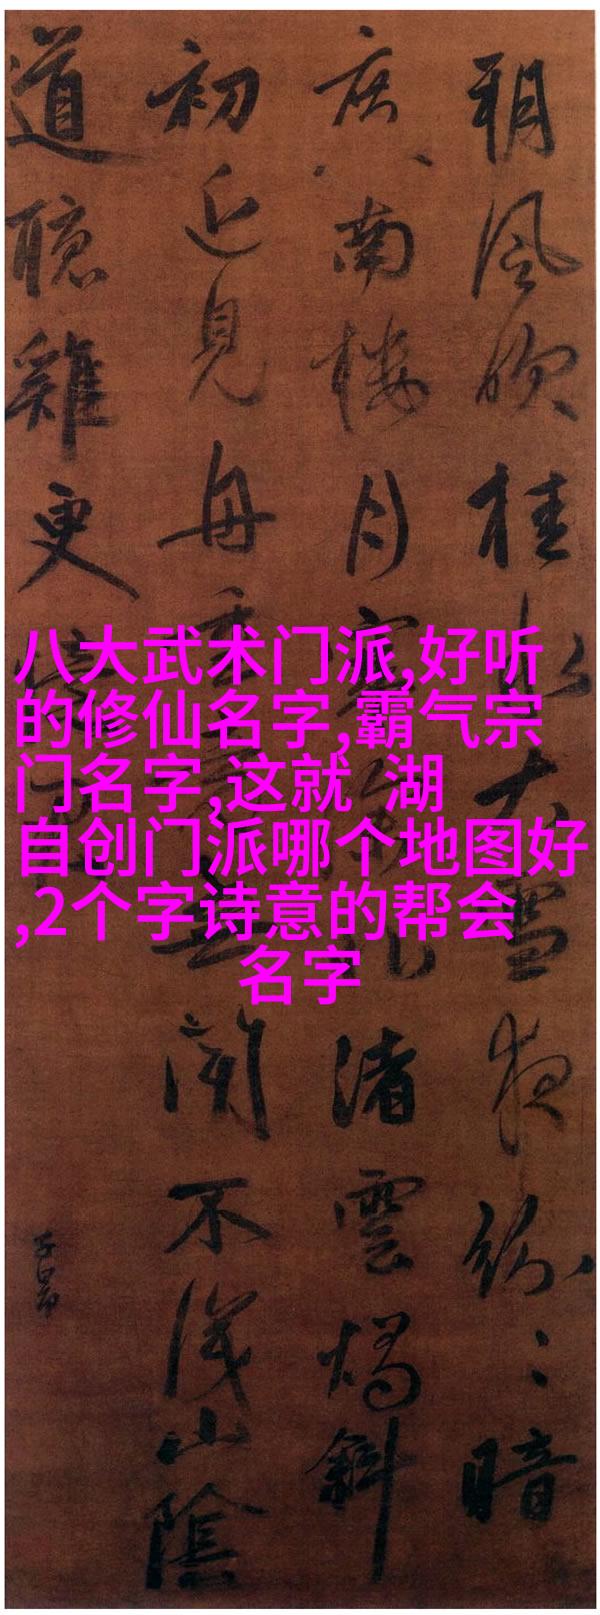 朔風吹桂水大雪夜紛〻暗
度南樓月寒渚雲燭斜
初近見舟重聞不識山陰
道聽雞更
子昂
八大武术门派,好听
的修仙名字,霸气宗
门名字,这就 湖
自创门派哪个地图好
,2个字诗意的帮会
名字